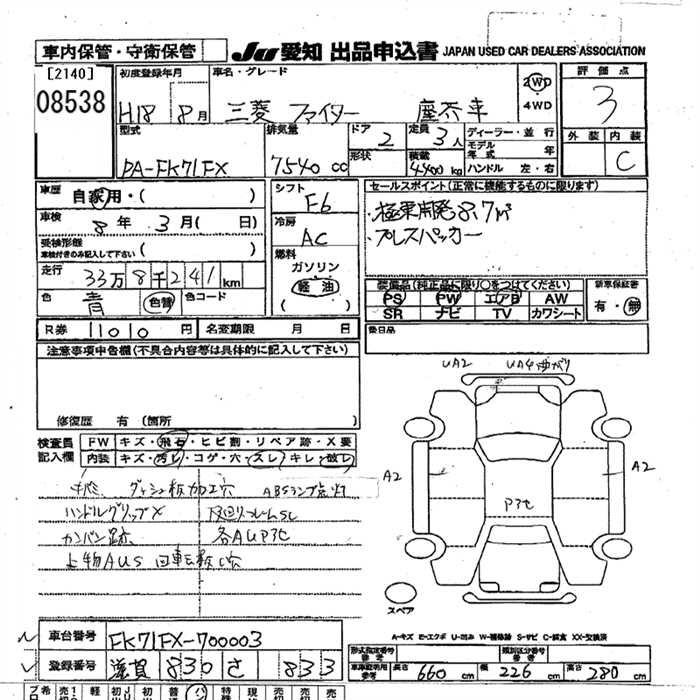 車内保管・守衛保管
JU 愛知 出品申込書 JAPAN USED CAR DEALERS ASSOCIATION
[2140]
08538
初度登録年月
H18 8月
車名・グレード
三菱 ファイター 塵芥車
2WD
4WD
評価点
3
外装 内装
C
型式
PA-FK71FX
排気量
7540 cc
ドア
2
形状
定員
3人
積載
4400 kg
ディーラー・並行
モデル年式 年
ハンドル 左・右
車歴
自家用・( )
車検
8年 3月( 日)
受検形態
車検付きのみ記入して下さい ( )
走行
33万8千241km
色
青
色替
色コード
シフト
F6
冷房
AC
燃料
ガソリン
軽油
セールスポイント(正常に機能するものに限ります)
極東開発8.7㎥
プレスパッカー
装備品(純正品に限り○をつけてください)
PS PW エアB AW
SR ナビ TV カワシート
新車保証書
有・無
R券 11010円
名変期限 月 日
後日品
注意事項申告欄(不具合内容等は具体的に記入して下さい)
修復歴 有(箇所
検査員記入欄
FW キズ・飛石・ヒビ割・リペア跡・X要
内装 キズ・汚レ・コゲ・穴・スレ・キレ・破レ
ダッシュ板加工穴 ABSランプ点灯
ハンドルグリップX
カンバン跡 各AUPサビ
上物AUS
UA2
A2
A2
スペア
A-キズ E-エクボ U-凹み W-補修跡 S-サビ C-腐食 XX-交換済
車台番号 FK71FX-700003
登録番号 滋賀 830 さ 833
型式指定番号
類別区分番号
車庫証明用参考
長さ 660 cm
幅 226 cm
高さ 280 cm